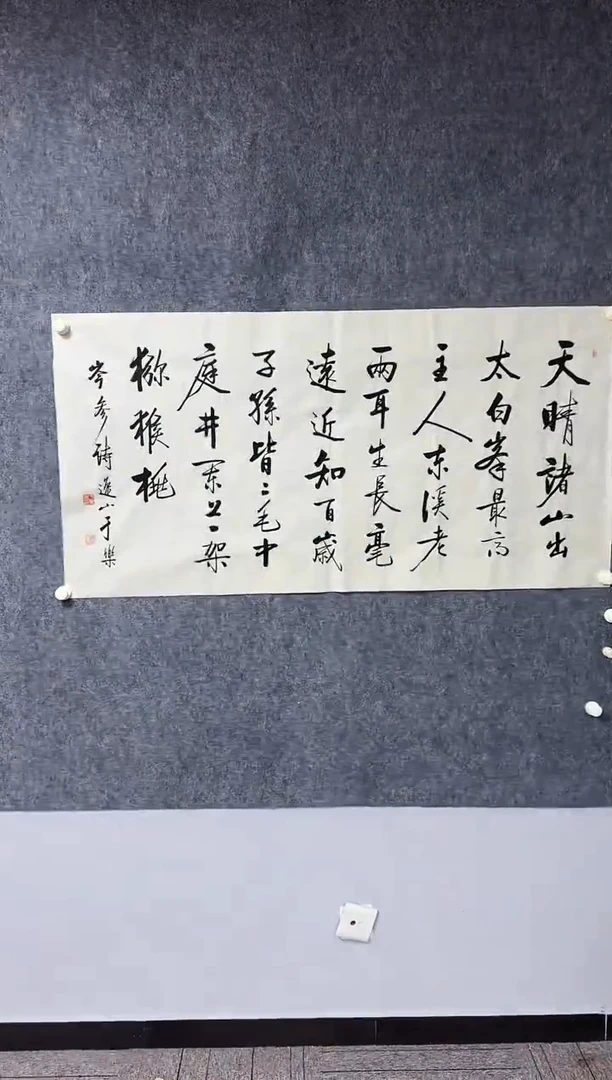 天晴諸山出
太白峯最高
主人东溪老
兩耳生長毫
遠近知百歲
子孫皆二毛中
庭井闌上一架
猕猴桃
岑參詩 逸山于樂